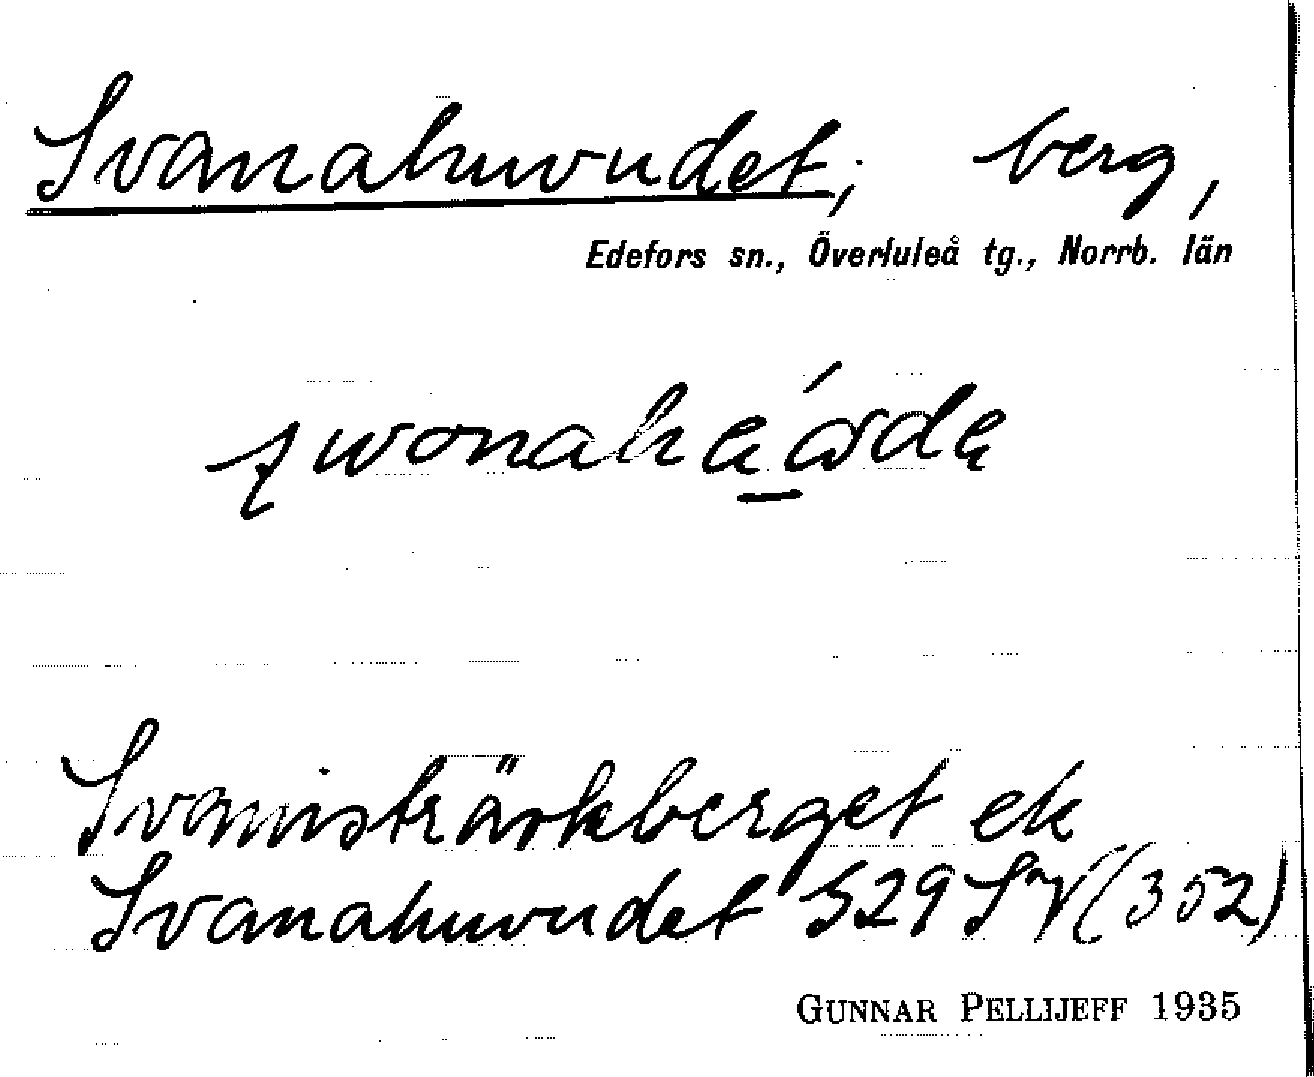 Svanahuvudet, berg,
Edefors sn., Överluleå tg., Norrb. län
Svanisträskberget ek
Svanahuvudet 529 SV (352)
GUNNAR PELLIJEFF 1935